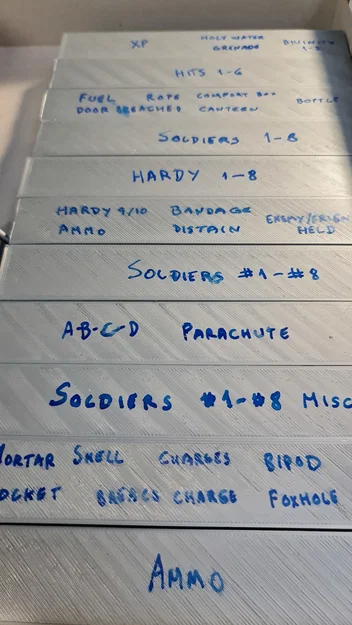 XP HOLY WATER GRENADE DIVINITY 1-2
HITS 1-6
FUEL ROPE COMFORT BOX BOTTLE
DOOR BREACHED CANTEEN
SOLDIERS 1-8
HARDY 1-8
HARDY 9/10 BANDAGE
AMMO DISTAIN HELD
SOLDIERS #1-#8
A-B-C-D PARACHUTE
SOLDIERS #1-#8 MISC
MORTAR SHELL CHARGES BIPOD
OCKET CHARGE FOXHOLE
AMMO